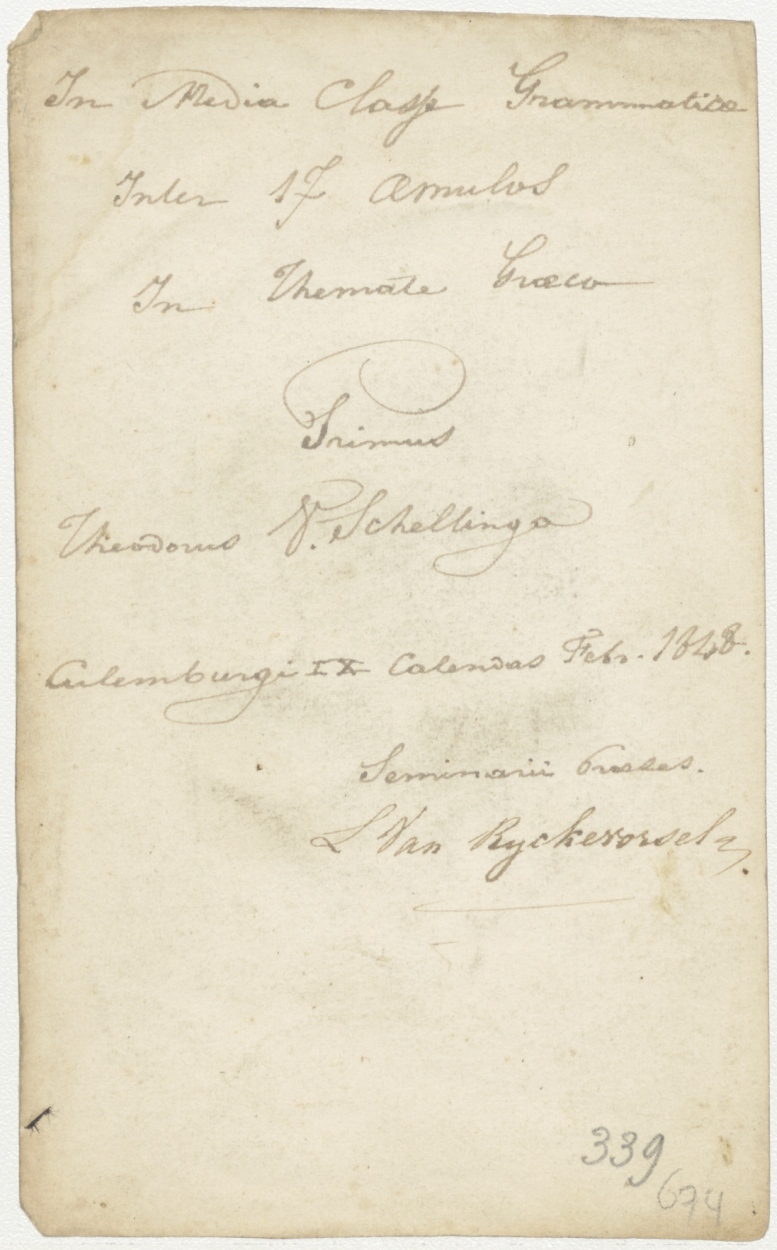 In Media Classe Grammaticæ
Inter 17 æmulos
In Themate Græco
Primus
Theodorus V. Scheltinga
Culemburgi IX Calendas Febr. 1848.
Seminarii Præses.
L Van Ryckevorsel
339
674